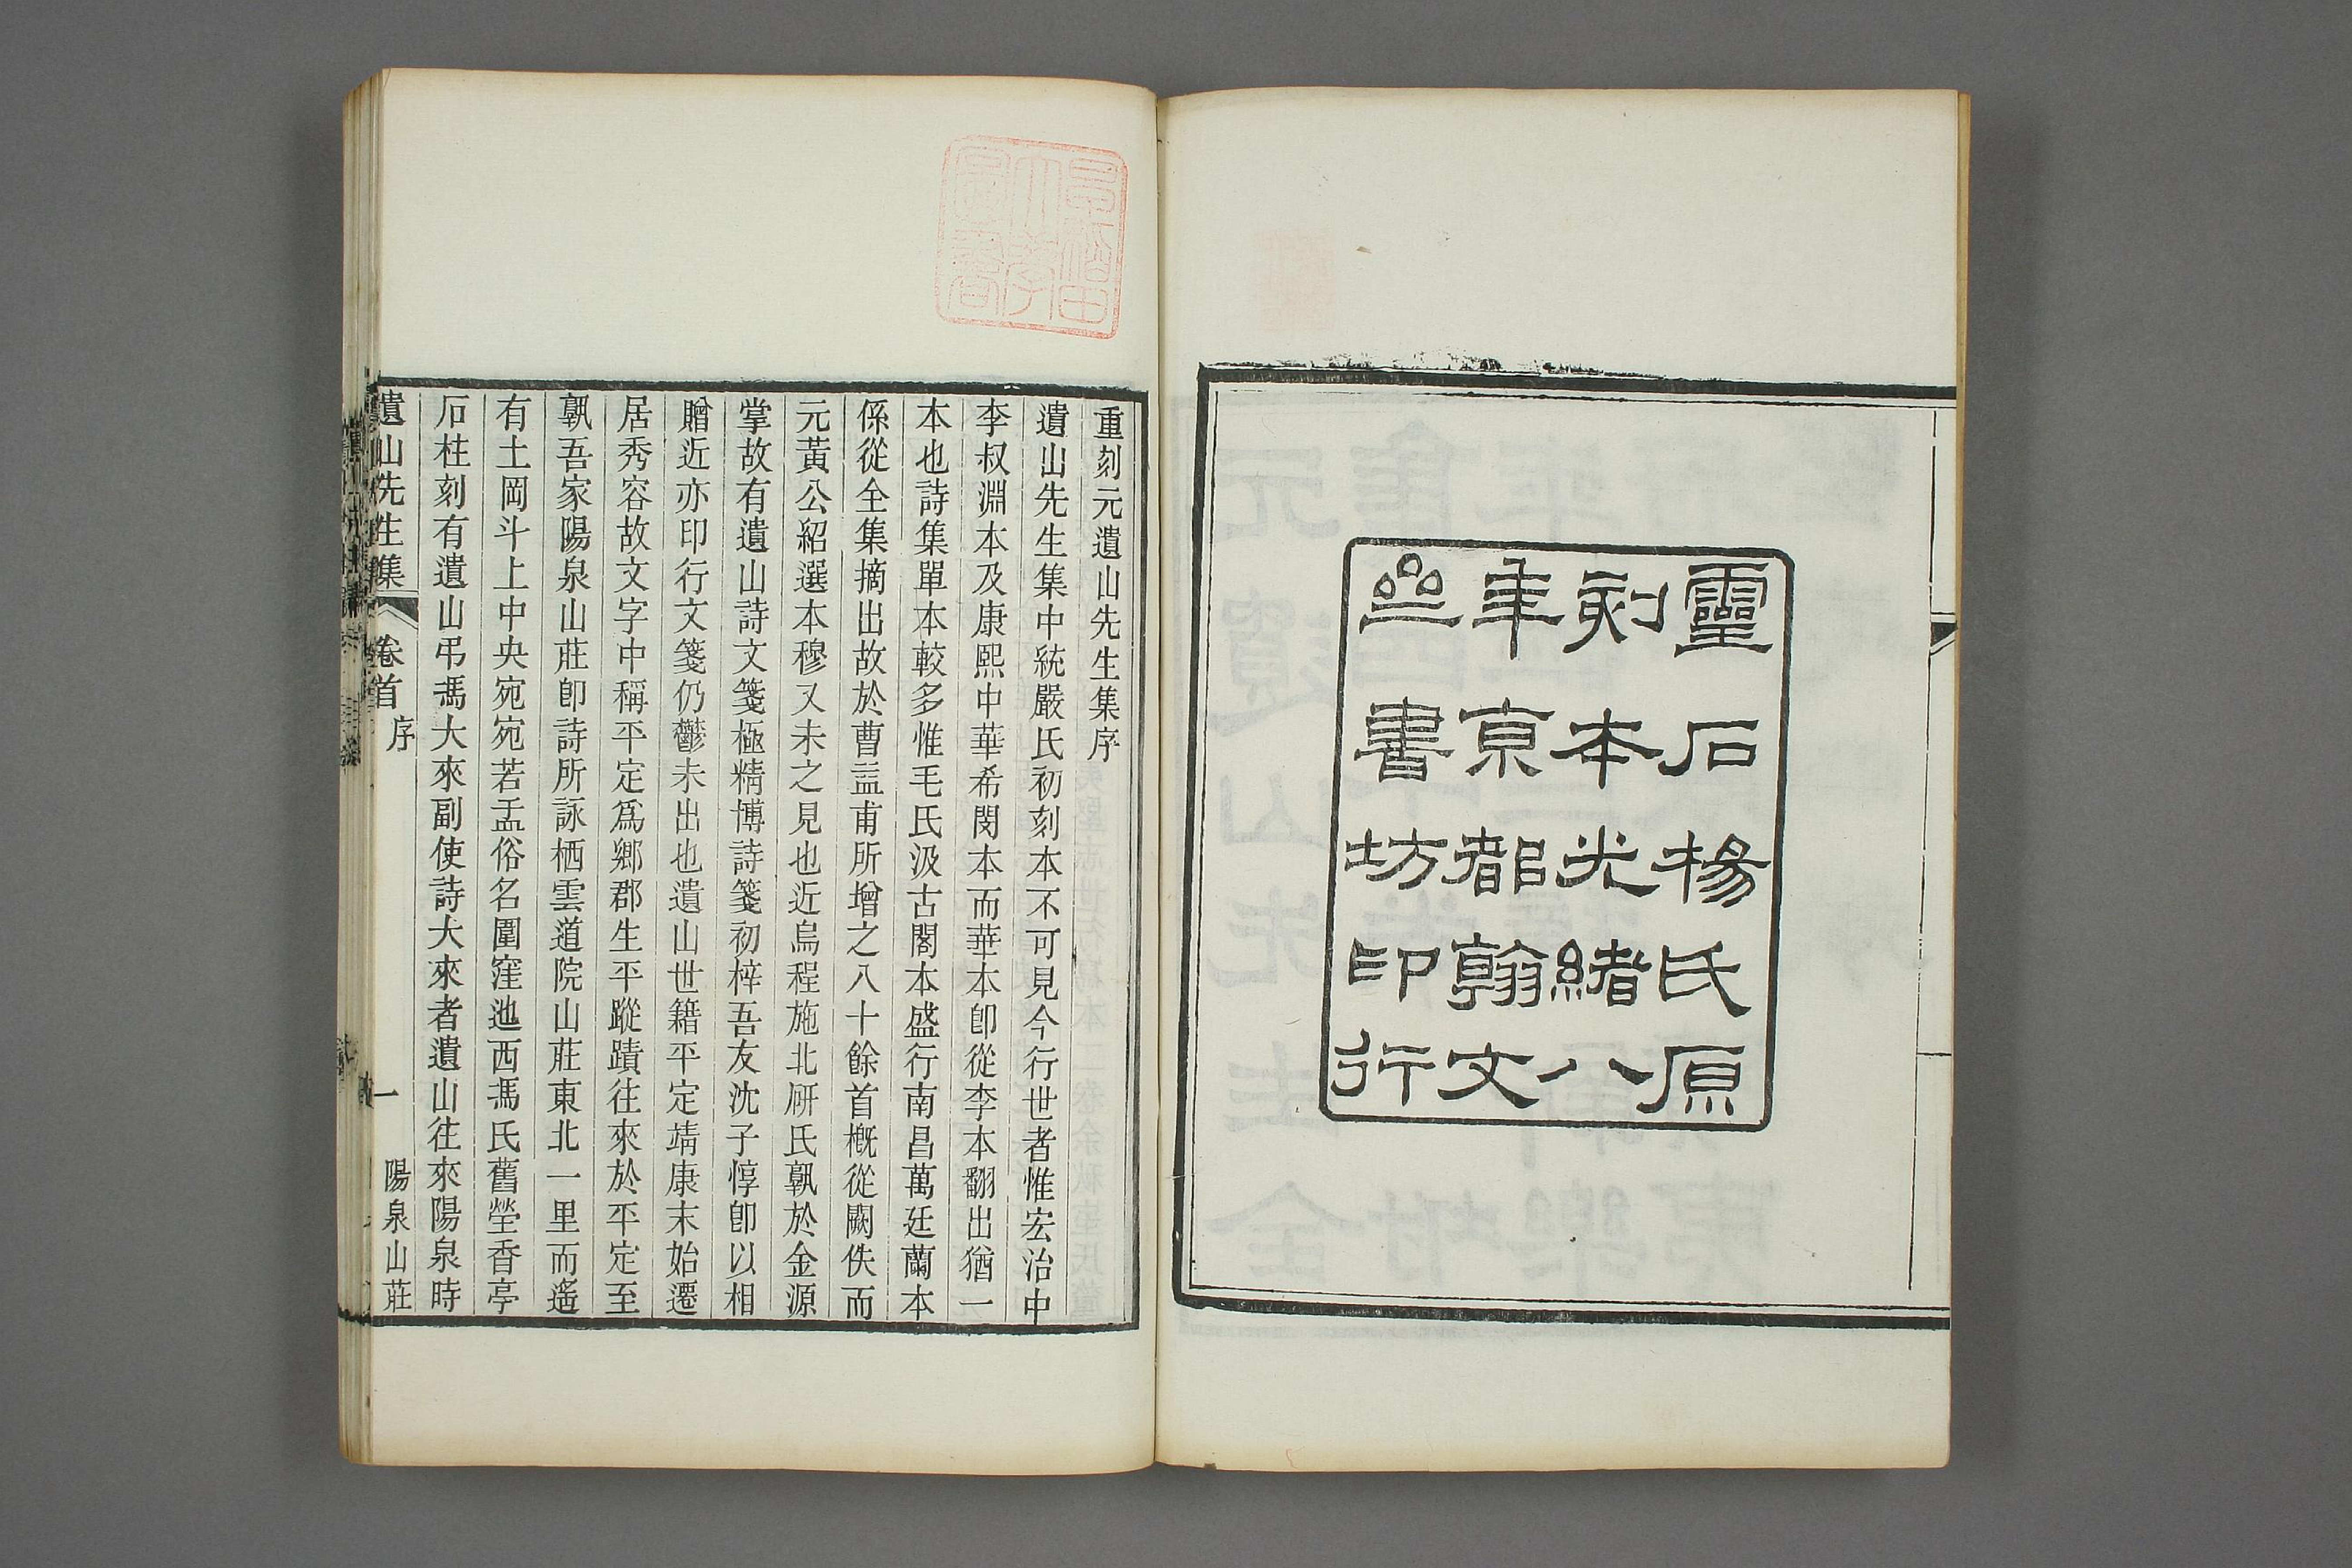 靈石楊氏原
刻本光緒八
年京都翰文
齋書坊印行
早稻田
大學
圖書
重刻元遺山先生集序
遺山先生集中統嚴氏初刻本不可見今行世者惟宏治中
李叔淵本及康熙中華希閔本而華本卽從李本翻出猶一
本也詩集單本較多惟毛氏汲古閣本盛行南昌萬廷蘭本
係從全集摘出故於曹益甫所增之八十餘首槪從闕佚而
元黃公紹選本穆又未之見也近烏程施北硏氏孰於金源
掌故有遺山詩文箋極精博詩箋初梓吾友沈子惇卽以相
贈近亦印行文箋仍鬱未出也遺山世籍平定靖康末始遷
居秀容故文字中稱平定爲鄉郡生平蹤蹟往來於平定至
孰吾家陽泉山莊卽詩所詠栖雲道院山莊東北一里而遙
有土岡斗上中央宛宛若盂俗名圍窪池西馮氏舊塋香亭
石柱刻有遺山弔馮大來副使詩大來者遺山往來陽泉時
遺山先生集 卷首 序 一 陽泉山莊